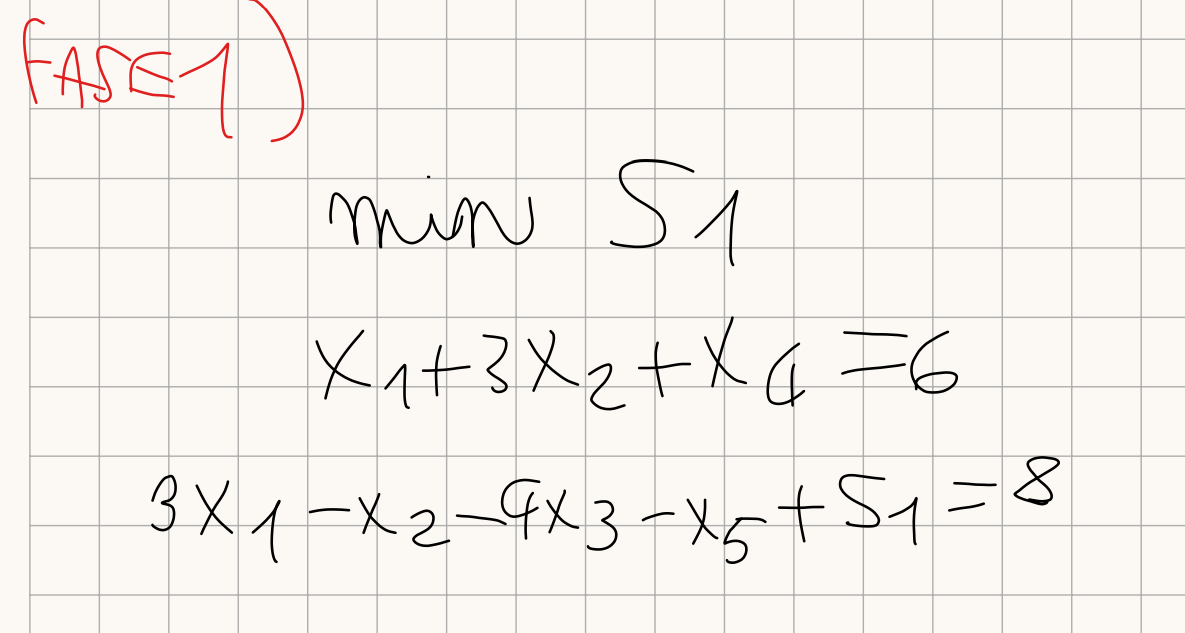 FASE 1)
min S1
x1+3x2+x4=6
3x1-x2-4x3-x5+S1=8